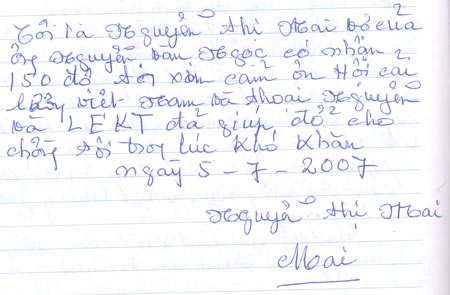 Tôi là Nguyễn thị Mai vở của
ông Nguyễn văn Ngọc có nhân
150 đô tôi xin cảm ơn Hồi cai
lây việt Nam và thoai Nguyễn
và LEKT đả giúp đở cho
chồng tôi trog lúc khó khăn
ngày 5 - 7 - 2007
Nguyễn thị Mai
Mai